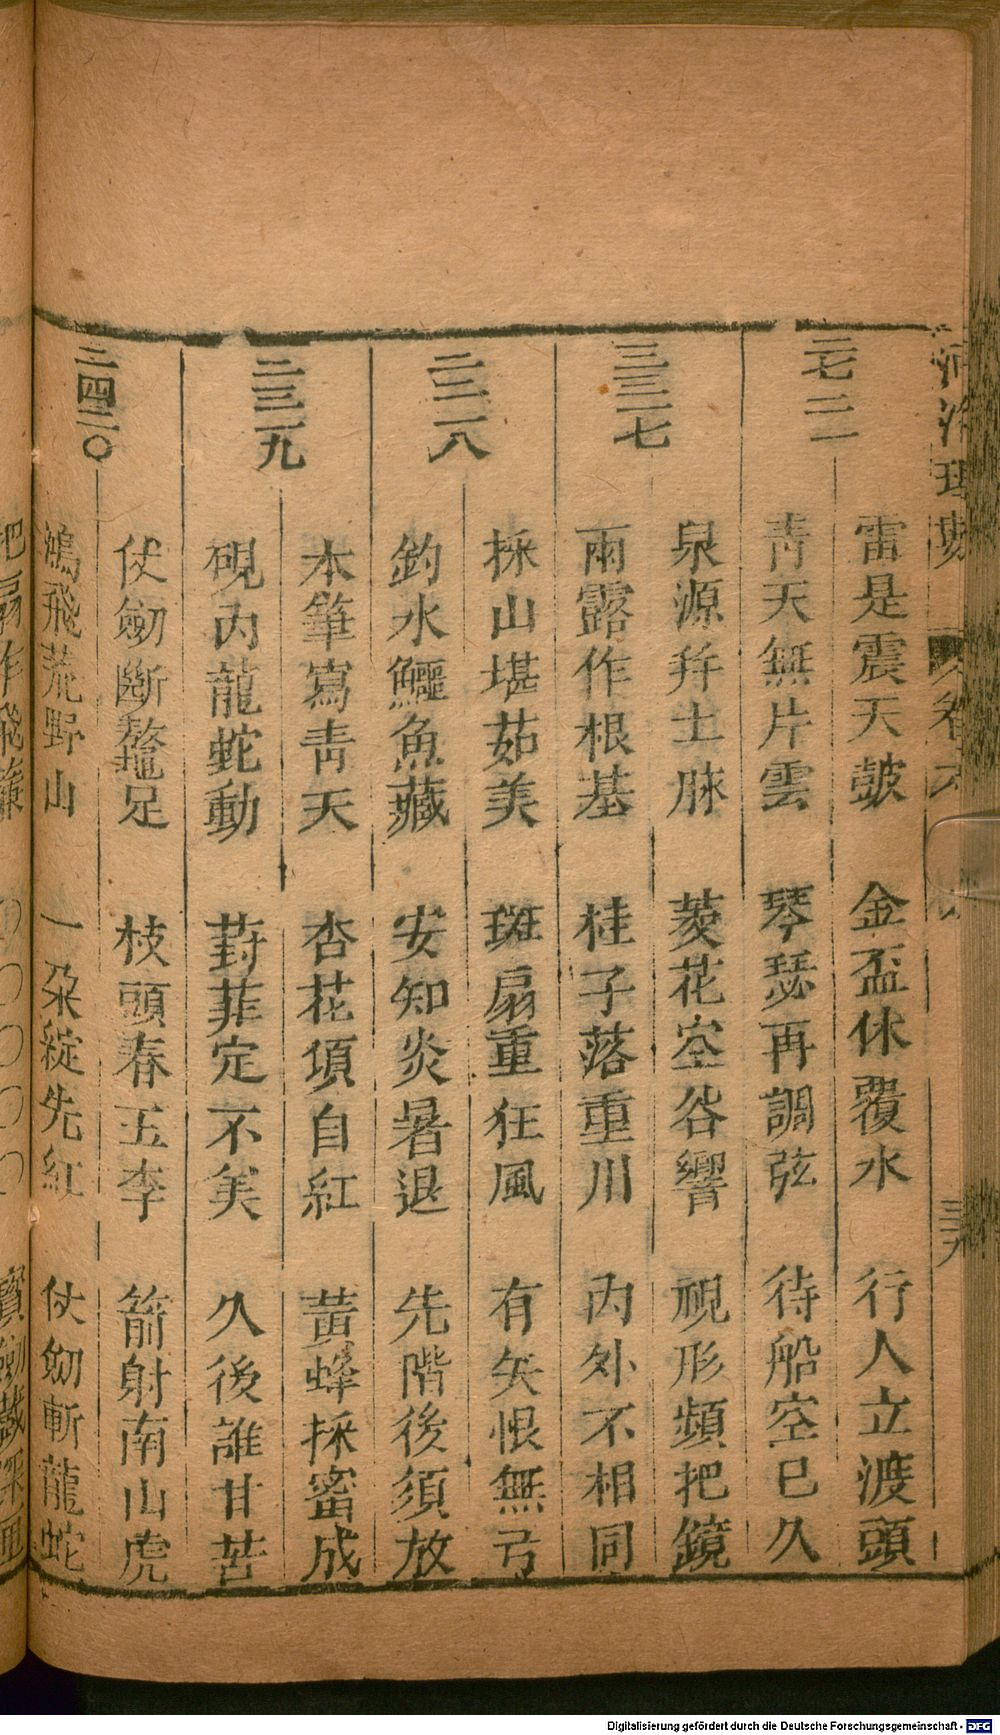 河洛理數 卷六
二七二一
雷是震天皷 金盃休覆水 行人立渡頭
青天無片雲 琴瑟再調弦 待船空已久
三三二七
泉源幷土脉 菱花空谷響 視形頻把鏡
雨露作根基 桂子落重川 內外不相同
二三一八
採山堪茹美 斑扇重狂風 有矢恨無弓
釣水鱷魚藏 安知炎暑退 先階後須放
二三二九
本筆寫青天 杏花項自紅 黃蜂採蜜成
硯內龍蛇動 葑菲定不美 久後誰甘苦
二四二〇
仗劒斷鼇足 枝頭春玉李 箭射南山虎
鴻飛荒野山 一朶綻先紅 仗劒斬龍蛇
把扇作飛簾 〇〇〇〇〇 寶劒藏深匣
Digitalisierung gefördert durch die Deutsche Forschungsgemeinschaft - DFG